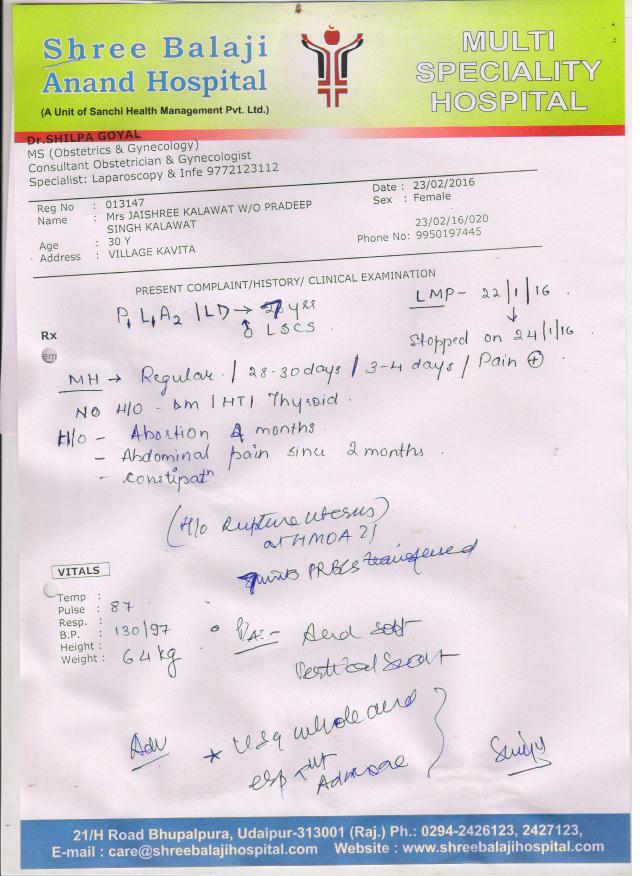 Shree Balaji
Anand Hospital
(A Unit of Sanchi Health Management Pvt. Ltd.)
MULTI
SPECIALITY
HOSPITAL
Dr.SHILPA GOYAL
MS (Obstetrics & Gynecology)
Consultant Obstetrician & Gynecologist
Specialist: Laparoscopy & Infe 9772123112
Reg No : 013147
Name : Mrs JAISHREE KALAWAT W/O PRADEEP
SINGH KALAWAT
Age : 30 Y
Address : VILLAGE KAVITA
Date : 23/02/2016
Sex : Female
23/02/16/020
Phone No: 9950197445
PRESENT COMPLAINT/HISTORY/ CLINICAL EXAMINATION
P1 L1 A2 / LD → 7 yrs
LSCS
LMP - 22/1/16
Stopped on 24/1/16
Rx
em
MH → Regular / 28-30 days / 3-4 days / Pain ⊕
NO H/O - DM / HT / Thyroid.
H/O - Abortion 2 months.
- Abdominal pain since 2 months.
- constipatn
(H/O Rupture uterus)
PRBCS transfused
VITALS
Temp :
Pulse : 87
Resp. :
B.P. : 130/97
Height :
Weight : 64 kg
P/A:- Abd soft
Vertical Scar +
Adv * USG whole abd
esp
21/H Road Bhupalpura, Udaipur-313001 (Raj.) Ph.: 0294-2426123, 2427123,
E-mail : care@shreebalajihospital.com Website : www.shreebalajihospital.com